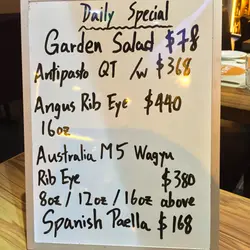 Daily Special
Garden Salad $78
Antipasto QT /w $368
Angus Rib Eye $440
16oz
Australia M5 Wagyu
Rib Eye $380
8oz / 12oz / 16oz above
Spanish Paella $168